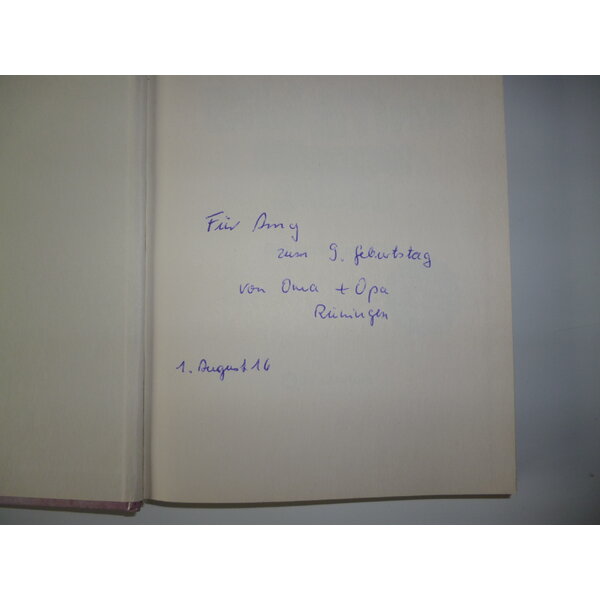 Für Amy
zum 9. Geburtstag
von Oma + Opa
Rüningen
1. August 16